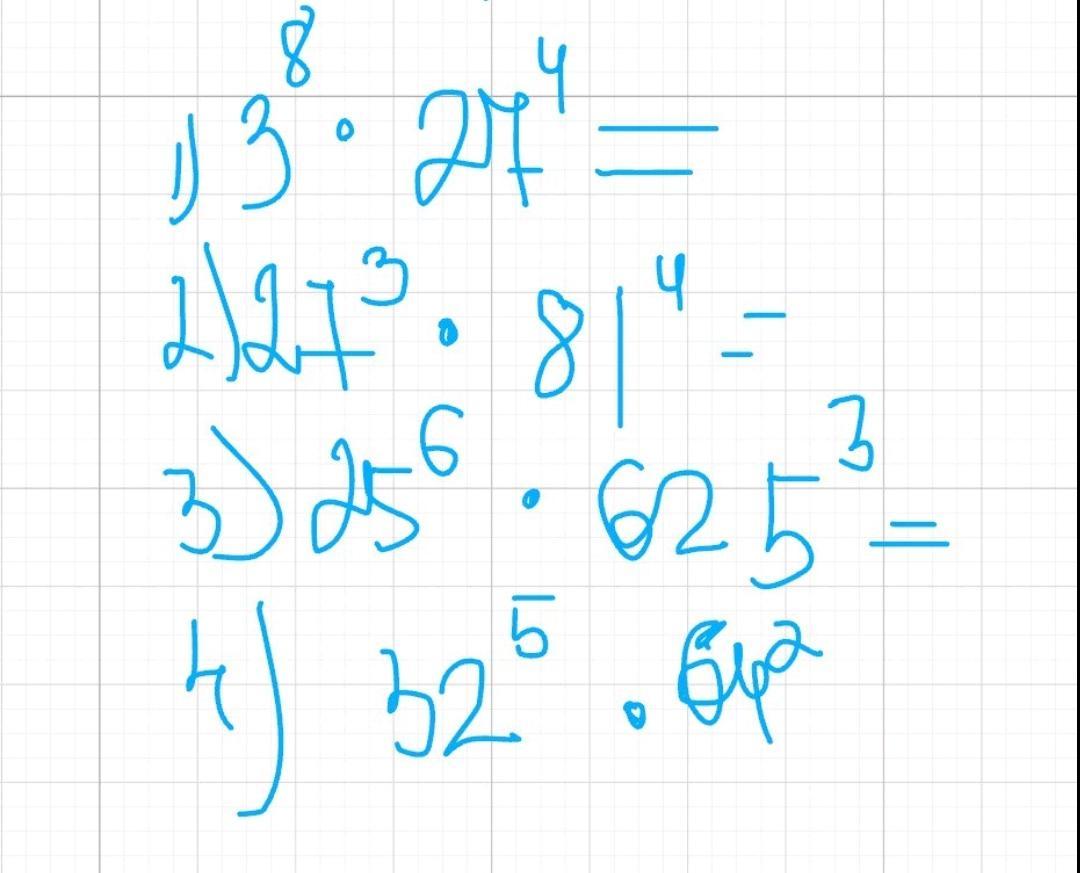 1) 3⁸ · 27⁴ =
2) 27³ · 81⁴ =
3) 25⁶ · 625³ =
4) 32⁵ · 64²